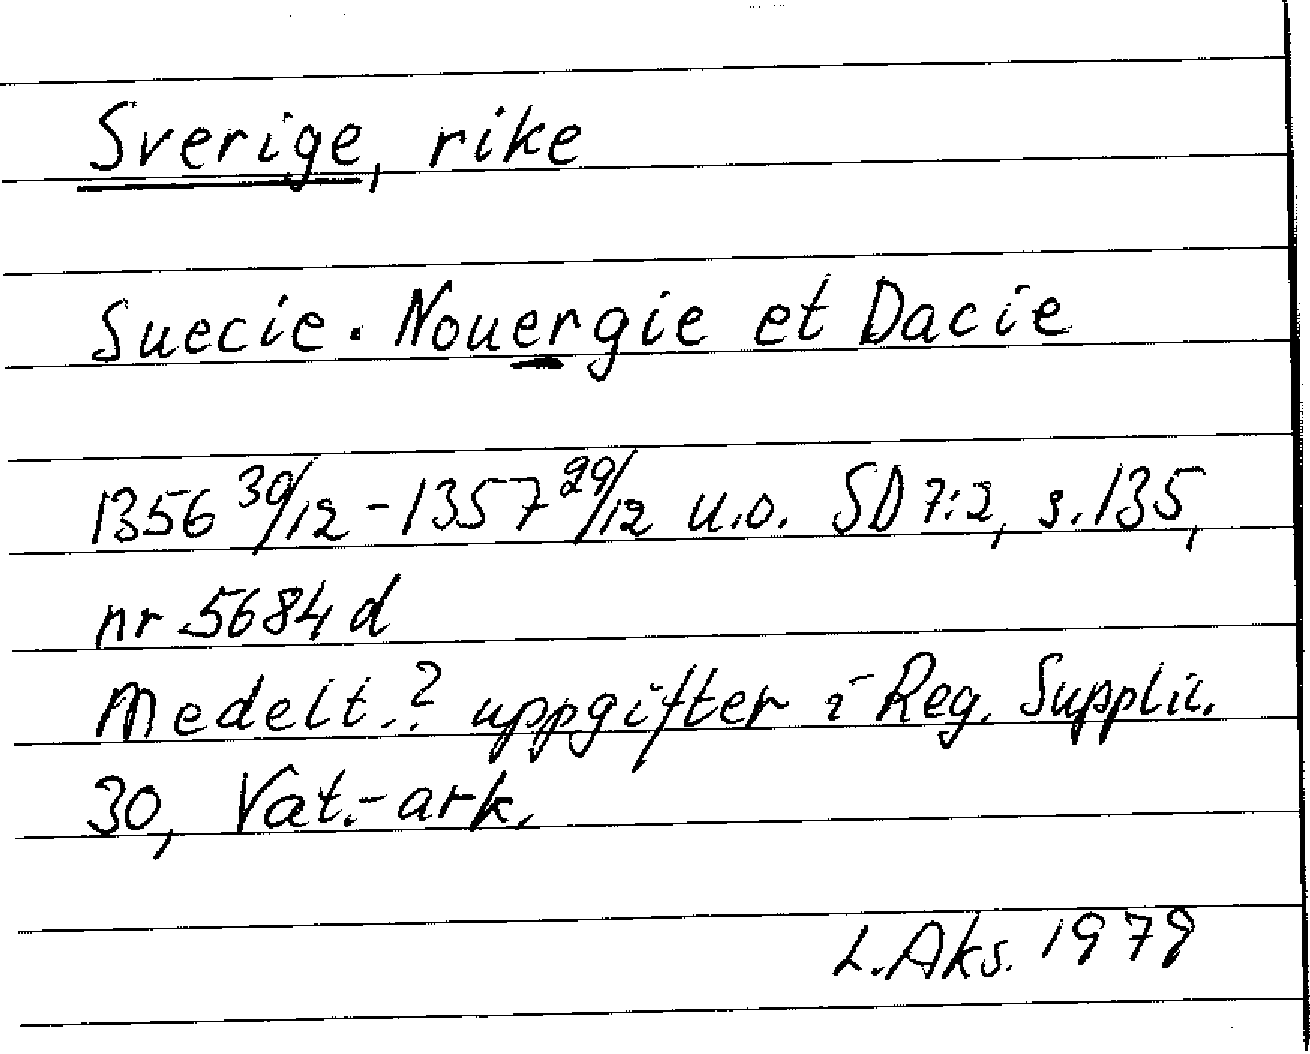 Sverige, rike
Suecie. Nouergie et Dacie
1356 30/12 - 1357 29/12 u.o. SD 7:2, s. 135,
nr 5684 d
Medelt.? uppgifter i Reg. Supplic.
30, Vat.-ark.
L. Aks. 1979